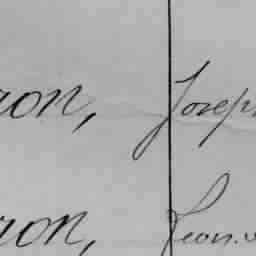 ron, Joseph
ron, Leon.